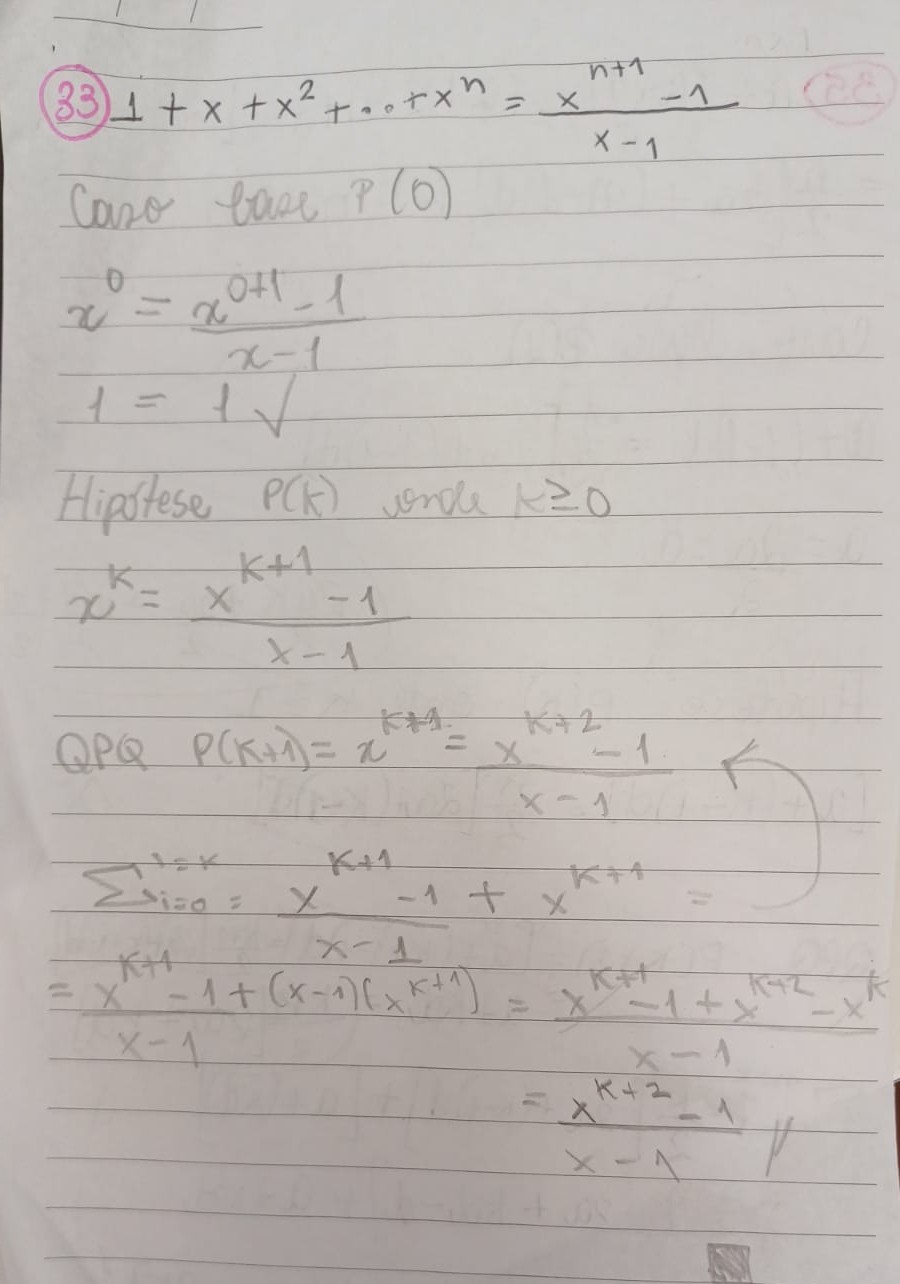 33 1 + x + x² + ... + xⁿ = (x^(n+1) - 1)/(x - 1)
Caso base P(0)
x^0 = (x^(0+1) - 1)/(x - 1)
1 = 1 √
Hipótese P(k) onde k ≥ 0
x^k = (x^(k+1) - 1)/(x - 1)
QPQ P(k+1) = x^(k+1) = (x^(k+2) - 1)/(x - 1)
∑_{i=0}^{i=k} = (x^(k+1) - 1)/(x - 1) + x^(k+1) =
= (x^(k+1) - 1 + (x-1)(x^(k+1)))/(x - 1) = (x^(k+1) - 1 + x^(k+2) - x^k)/(x - 1)
= (x^(k+2) - 1)/(x - 1) //